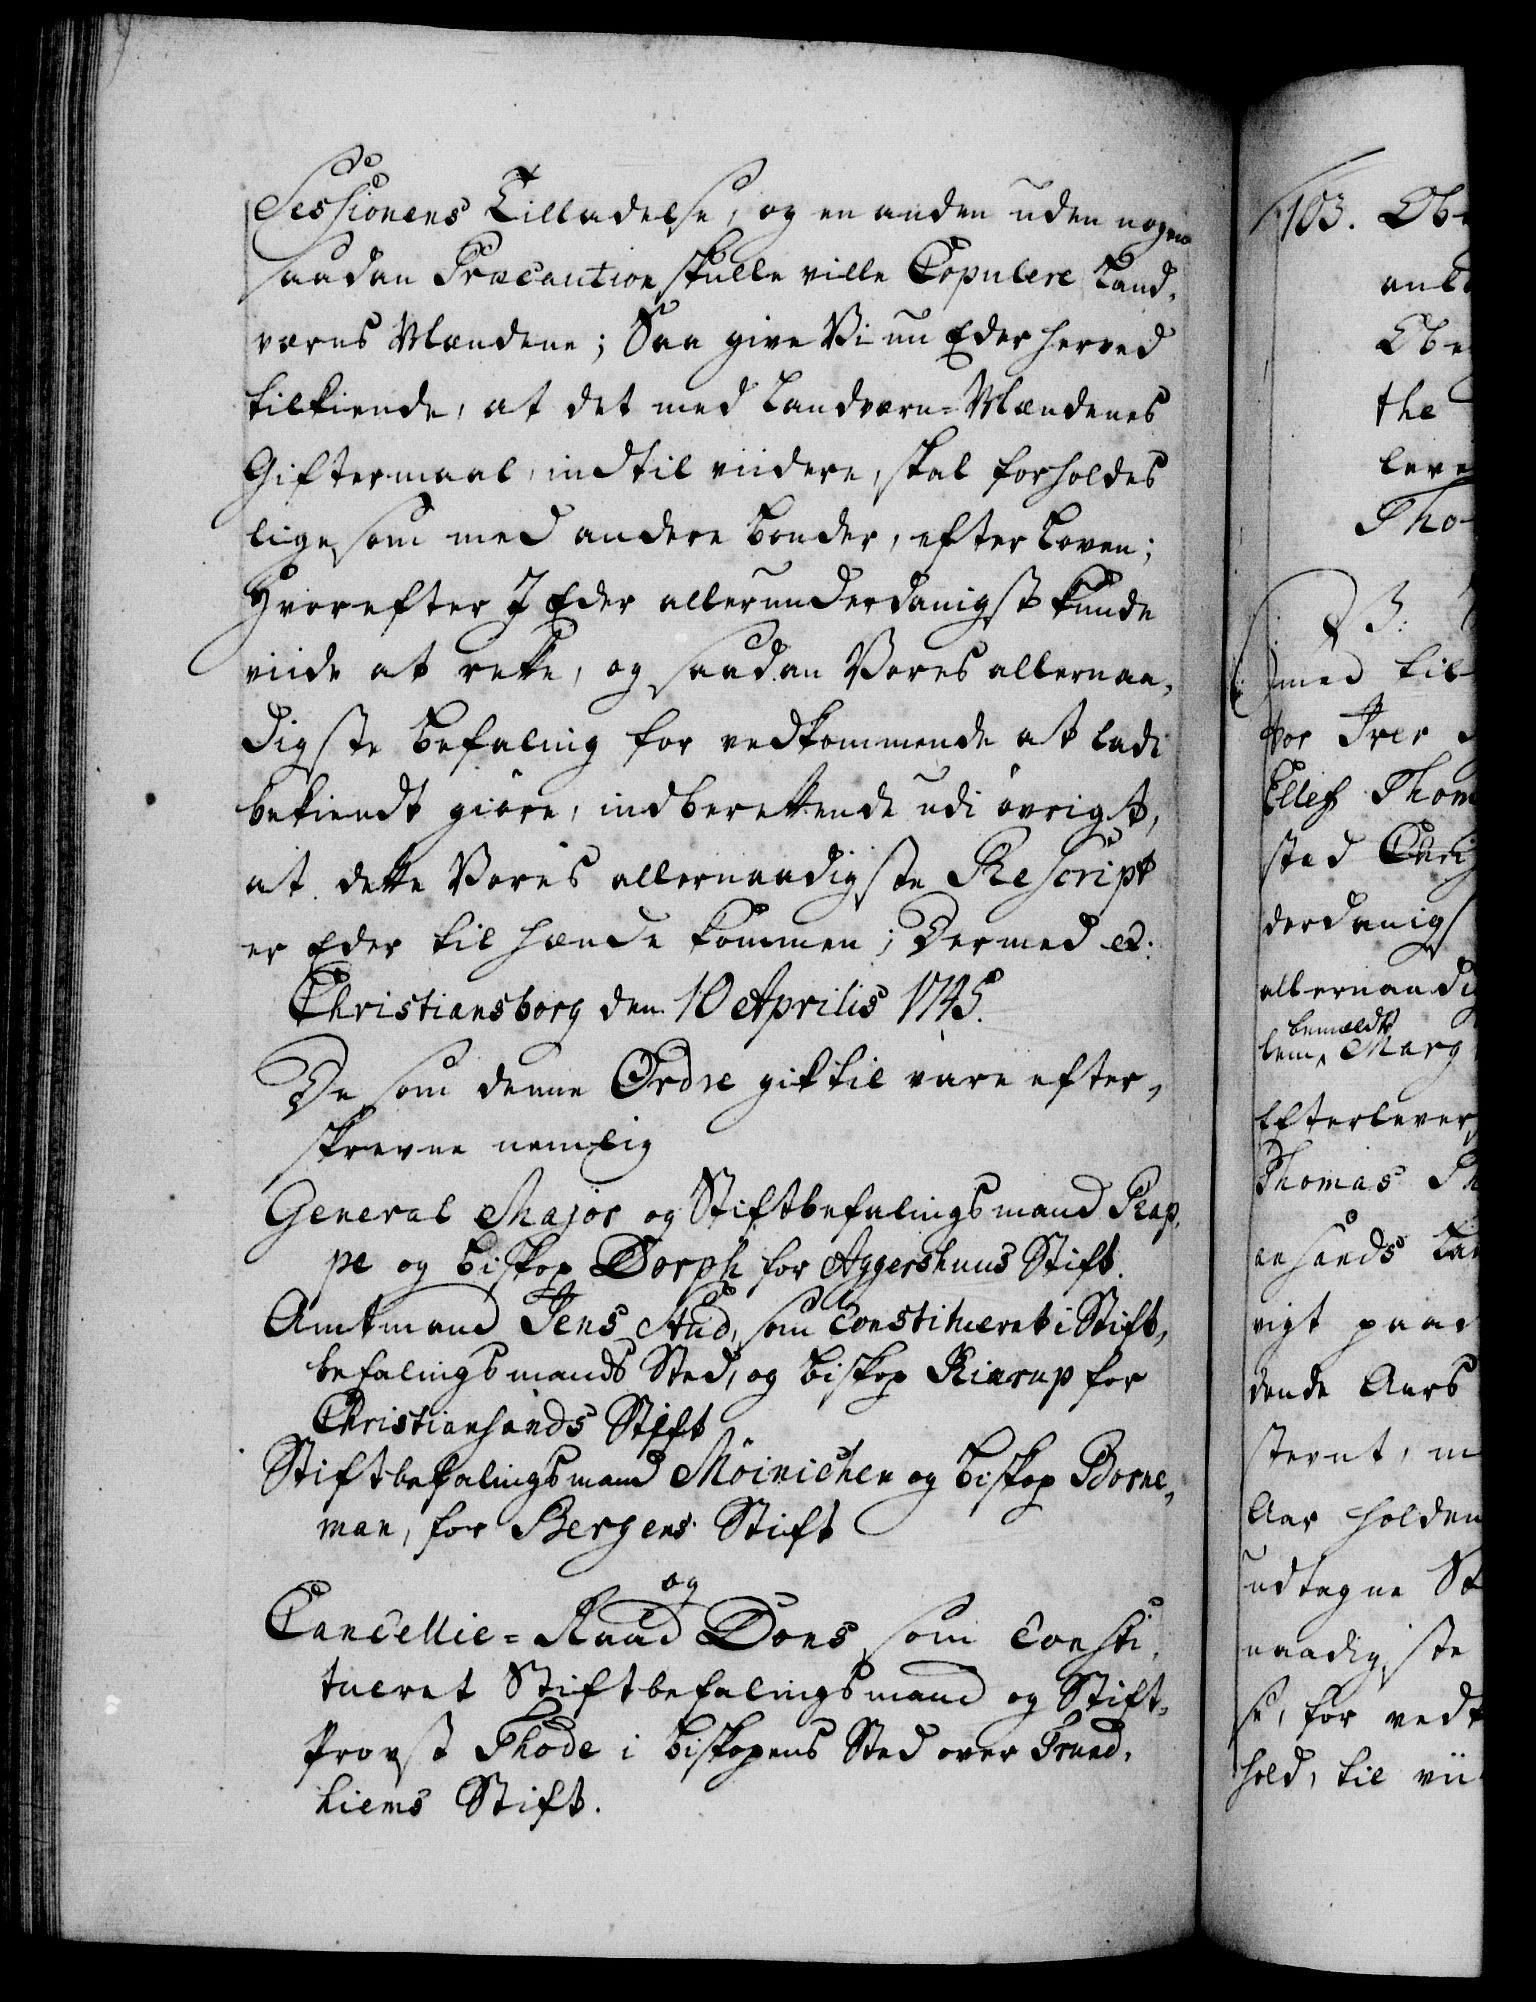 Sessionens Tilladelse, og en anden uden nogen
saadan Præcaution skulle ville Copulere Land,
værns Mændene; Saa give Vi nu Eder herved
tilkiende, at det med Landværn=Mændenes
Giftermaal, indtil viidere, skal forholdes
ligesom med andere bønder, efter Loven;
Hvorefter I Eder allerunderdanigst kunde
viide at rette, og saadan Vores allernaa,
digste befaling for vedkommende at lade
bekiendt giøre, indberettende udi øvrigt,
at dette Vores allernaadigste Rescript
er Eder til hænde kommen; Dermed etc.
Christiansborg den 10 Aprilis 1745.
De som denne Ordre gik til vare efter,
skrevne nemlig
General Major og Stiftbefalingsmand Rap,
pe og biskop Dorph for Aggershuus Stift.
Amtmand Jens Aud, som Constitueret i Stift,
befalingsmands Sted, og biskop Kierup for
Christiansands Stift
Stiftbefalingsmand Möinichen og biskop Borne,
man, for Bergens Stift
og
Cancellie=Raad Dons som Consti,
tueret Stiftbefalingsmand og Stift,
Provst Thode i biskopens Sted over Trund,
hiems Stift.
103. Ob
Obe
the
leve
Tho
med til
tor Iver
Ellef Thom
sted
derdanigs
allernaadig
bemeldte
lem, Marg
Efterlever
Thomas Th
ansands
vigt paa
dende Aars
stevnt, m
Aar holden
udtagne St
naadigste
se, for vedk
hold, til vii